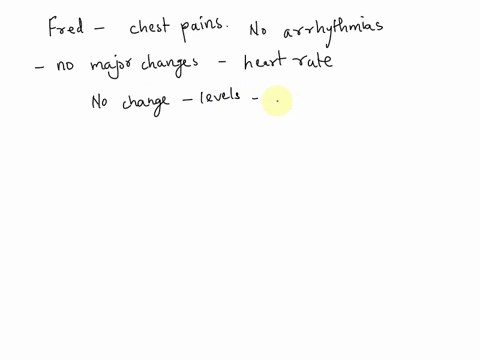 Fred - chest pains. No arrhythmias
- no major changes - heart rate
No change - levels -